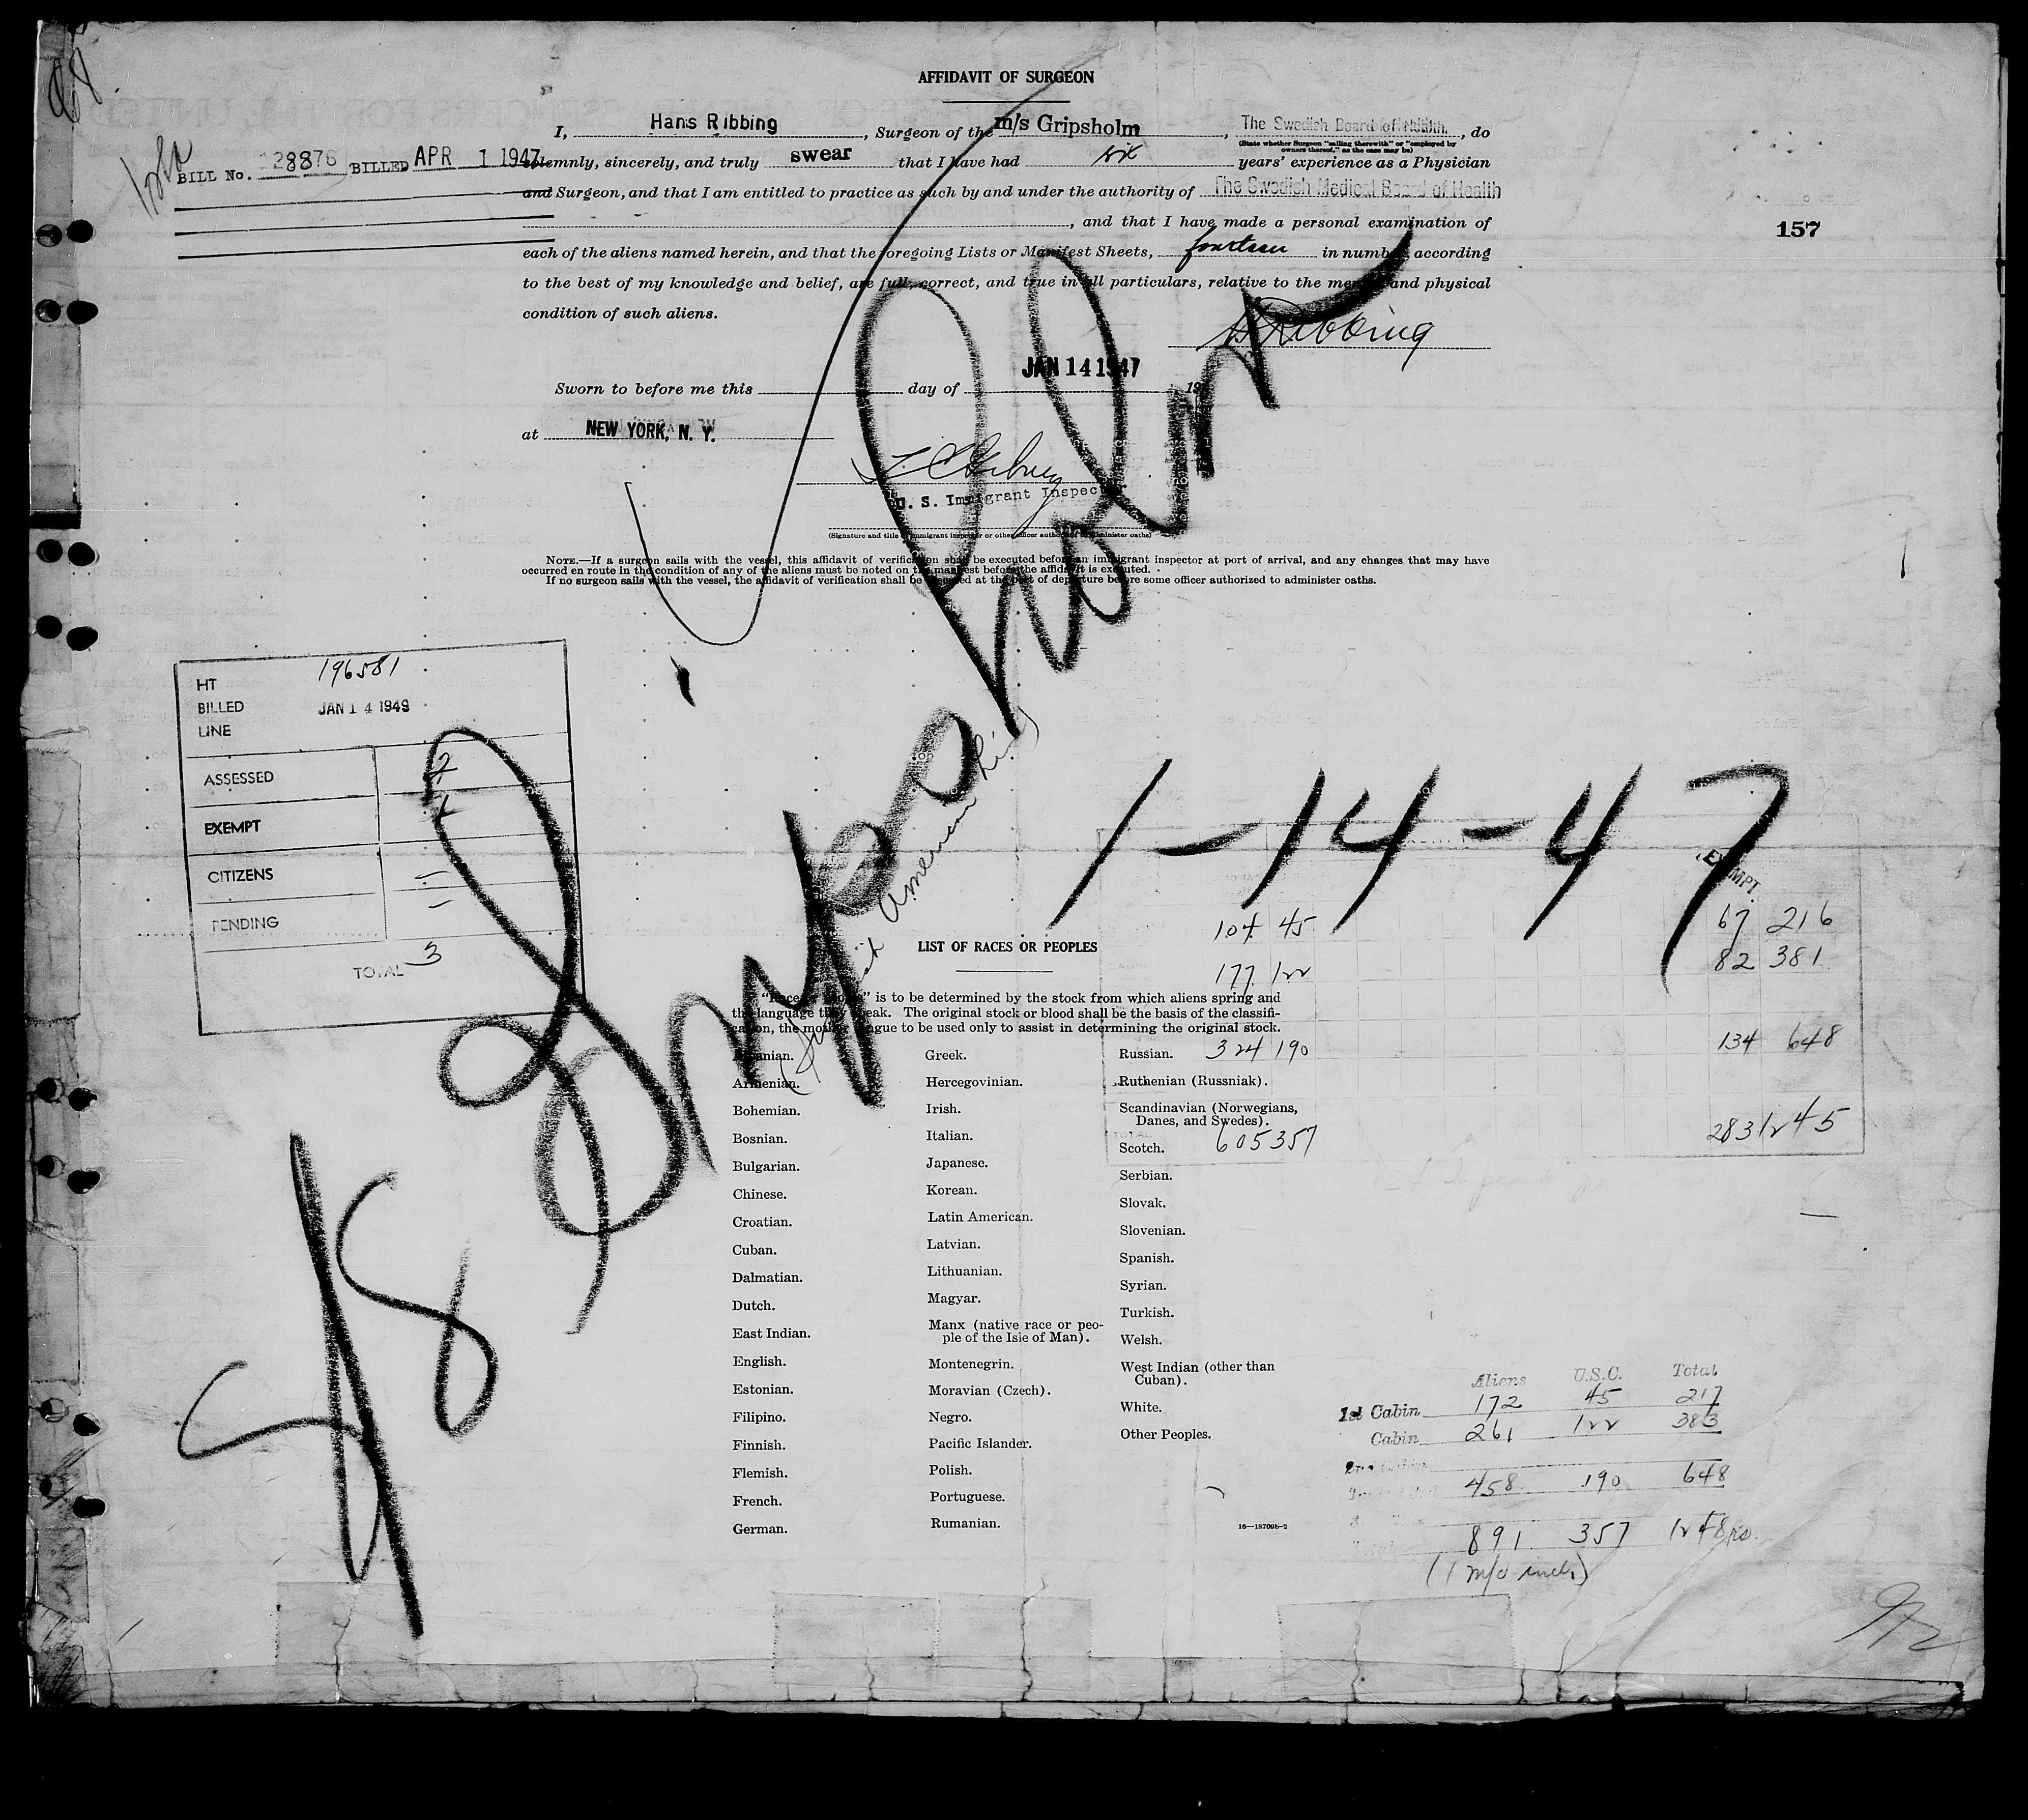 AFFIDAVIT OF SURGEON
I, Hans Ribbing, Surgeon of the m/s Gripsholm, The Swedish Board of Health, do
(State whether Surgeon "sailing therewith" or "employed by
owners thereof," as the case may be)
BILL No. 28876 BILLED APR 1 1947
solemnly, sincerely, and truly swear that I have had six years' experience as a Physician
and Surgeon, and that I am entitled to practice as such by and under the authority of The Swedish Medical Board of Health
, and that I have made a personal examination of
157
each of the aliens named herein, and that the foregoing Lists or Manifest Sheets, fourteen in number, according
to the best of my knowledge and belief, are full, correct, and true in all particulars, relative to the mental and physical
condition of such aliens.
H Ribbing
Sworn to before me this day of JAN 14 1947 19
at NEW YORK, N. Y.
U. S. Immigrant Inspector
(Signature and title of immigrant inspector or other officer authorized to administer oaths)
NOTE.—If a surgeon sails with the vessel, this affidavit of verification shall be executed before an immigrant inspector at port of arrival, and any changes that may have
occurred en route in the condition of any of the aliens must be noted on the manifest before the affidavit is executed.
If no surgeon sails with the vessel, the affidavit of verification shall be executed at the port of departure before some officer authorized to administer oaths.
HT 196581
BILLED JAN 14 1949
LINE
ASSESSED 2
EXEMPT 1
CITIZENS –
PENDING –
TOTAL 3
S/S Gripsholm
(Swedish American Line)
1-14-47
EXEMPT
104 45 67 216
177 122 82 381
324 190 134 648
605 357 283 1245
LIST OF RACES OR PEOPLES
"Race or people" is to be determined by the stock from which aliens spring and
the language they speak. The original stock or blood shall be the basis of the classifi-
cation, the mother tongue to be used only to assist in determining the original stock.
Albanian.
Armenian.
Bohemian.
Bosnian.
Bulgarian.
Chinese.
Croatian.
Cuban.
Dalmatian.
Dutch.
East Indian.
English.
Estonian.
Filipino.
Finnish.
Flemish.
French.
German.
Greek.
Hercegovinian.
Irish.
Italian.
Japanese.
Korean.
Latin American.
Latvian.
Lithuanian.
Magyar.
Manx (native race or peo-
ple of the Isle of Man).
Montenegrin.
Moravian (Czech).
Negro.
Pacific Islander.
Polish.
Portuguese.
Rumanian.
Russian.
Ruthenian (Russniak).
Scandinavian (Norwegians,
Danes, and Swedes).
Scotch.
Serbian.
Slovak.
Slovenian.
Spanish.
Syrian.
Turkish.
Welsh.
West Indian (other than
Cuban).
White.
Other Peoples.
16—18709b-2
Aliens U.S.C. Total
1st Cabin 172 45 217
Cabin 261 122 383
458 190 648
Total 891 357 1248